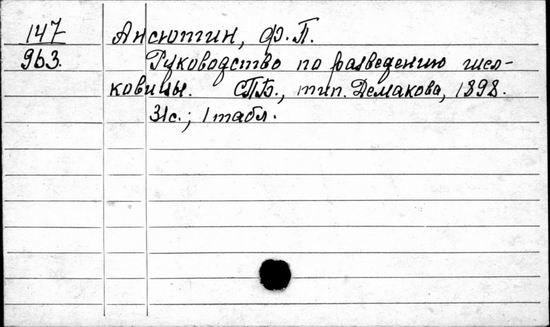 147 Ансютин, Ф.П.
963. Руководство по разведению шел-
ковицы. СПБ., тип. Демакова, 1898.
31с.; 1 табл.